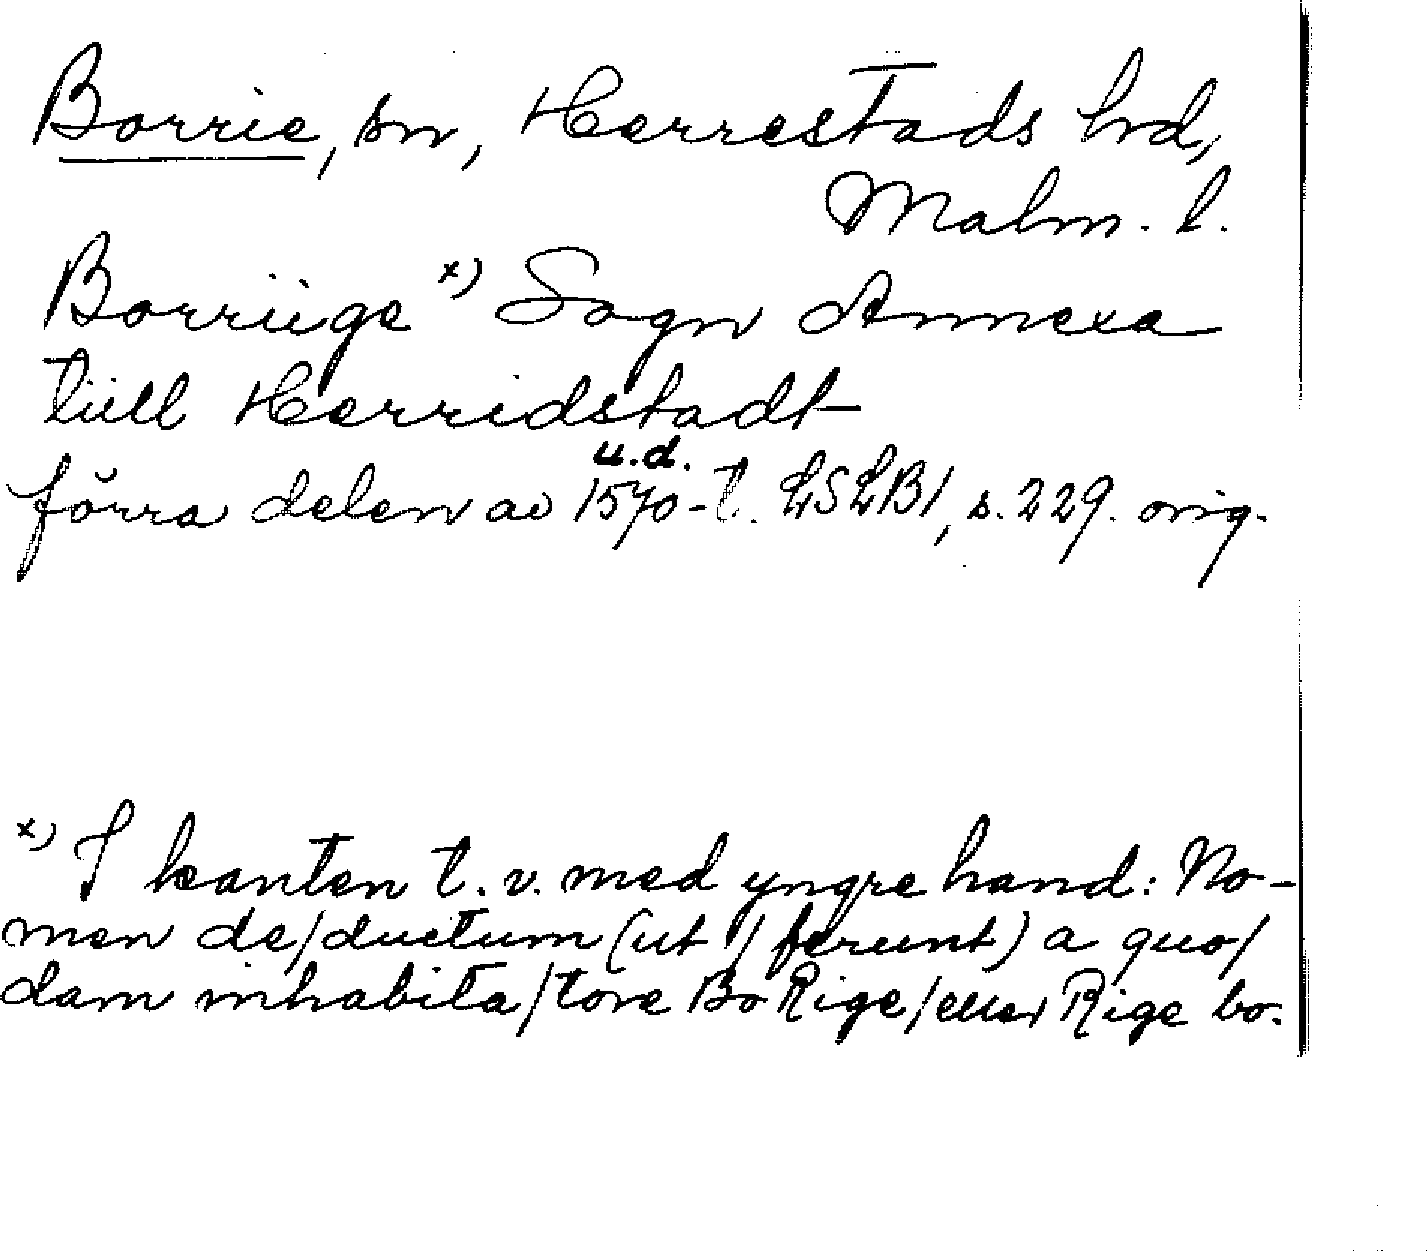 Borrie, sn, Herrestads hd,
Malm. l.
Borriige x) Sogn Annexa
tiill Herridstadt
u.d.
förra delen av 1570-t. LSLB1, s. 229. orig.
x) I kanten t. v. med yngre hand: No-
men de/ductum (ut / ferunt) a quo/
dam inhabita/tore Bo Rige/eller Rige bo.